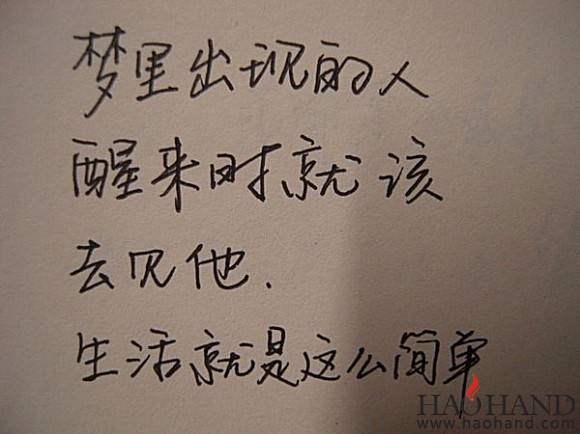 梦里出现的人
醒来时就该
去见他.
生活就是这么简单
HAOHAND
www.haohand.com